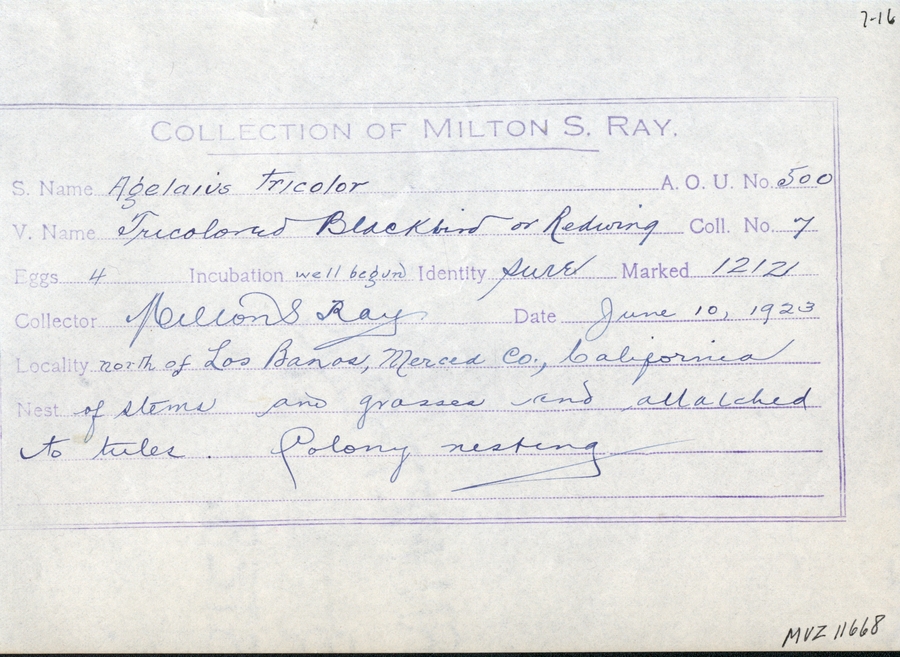 7-16
COLLECTION OF MILTON S. RAY.
S. Name Agelaius tricolor A. O. U. No. 500
V. Name Tricolored Blackbird or Redwing Coll. No. 7
Eggs 4 Incubation well begun Identity sure Marked 1212
Collector Milton S Ray Date June 10, 1923
Locality north of Los Banos, Merced Co., California
Nest of stems and grasses and attatched
to tules. Colony nesting
MVZ 11668